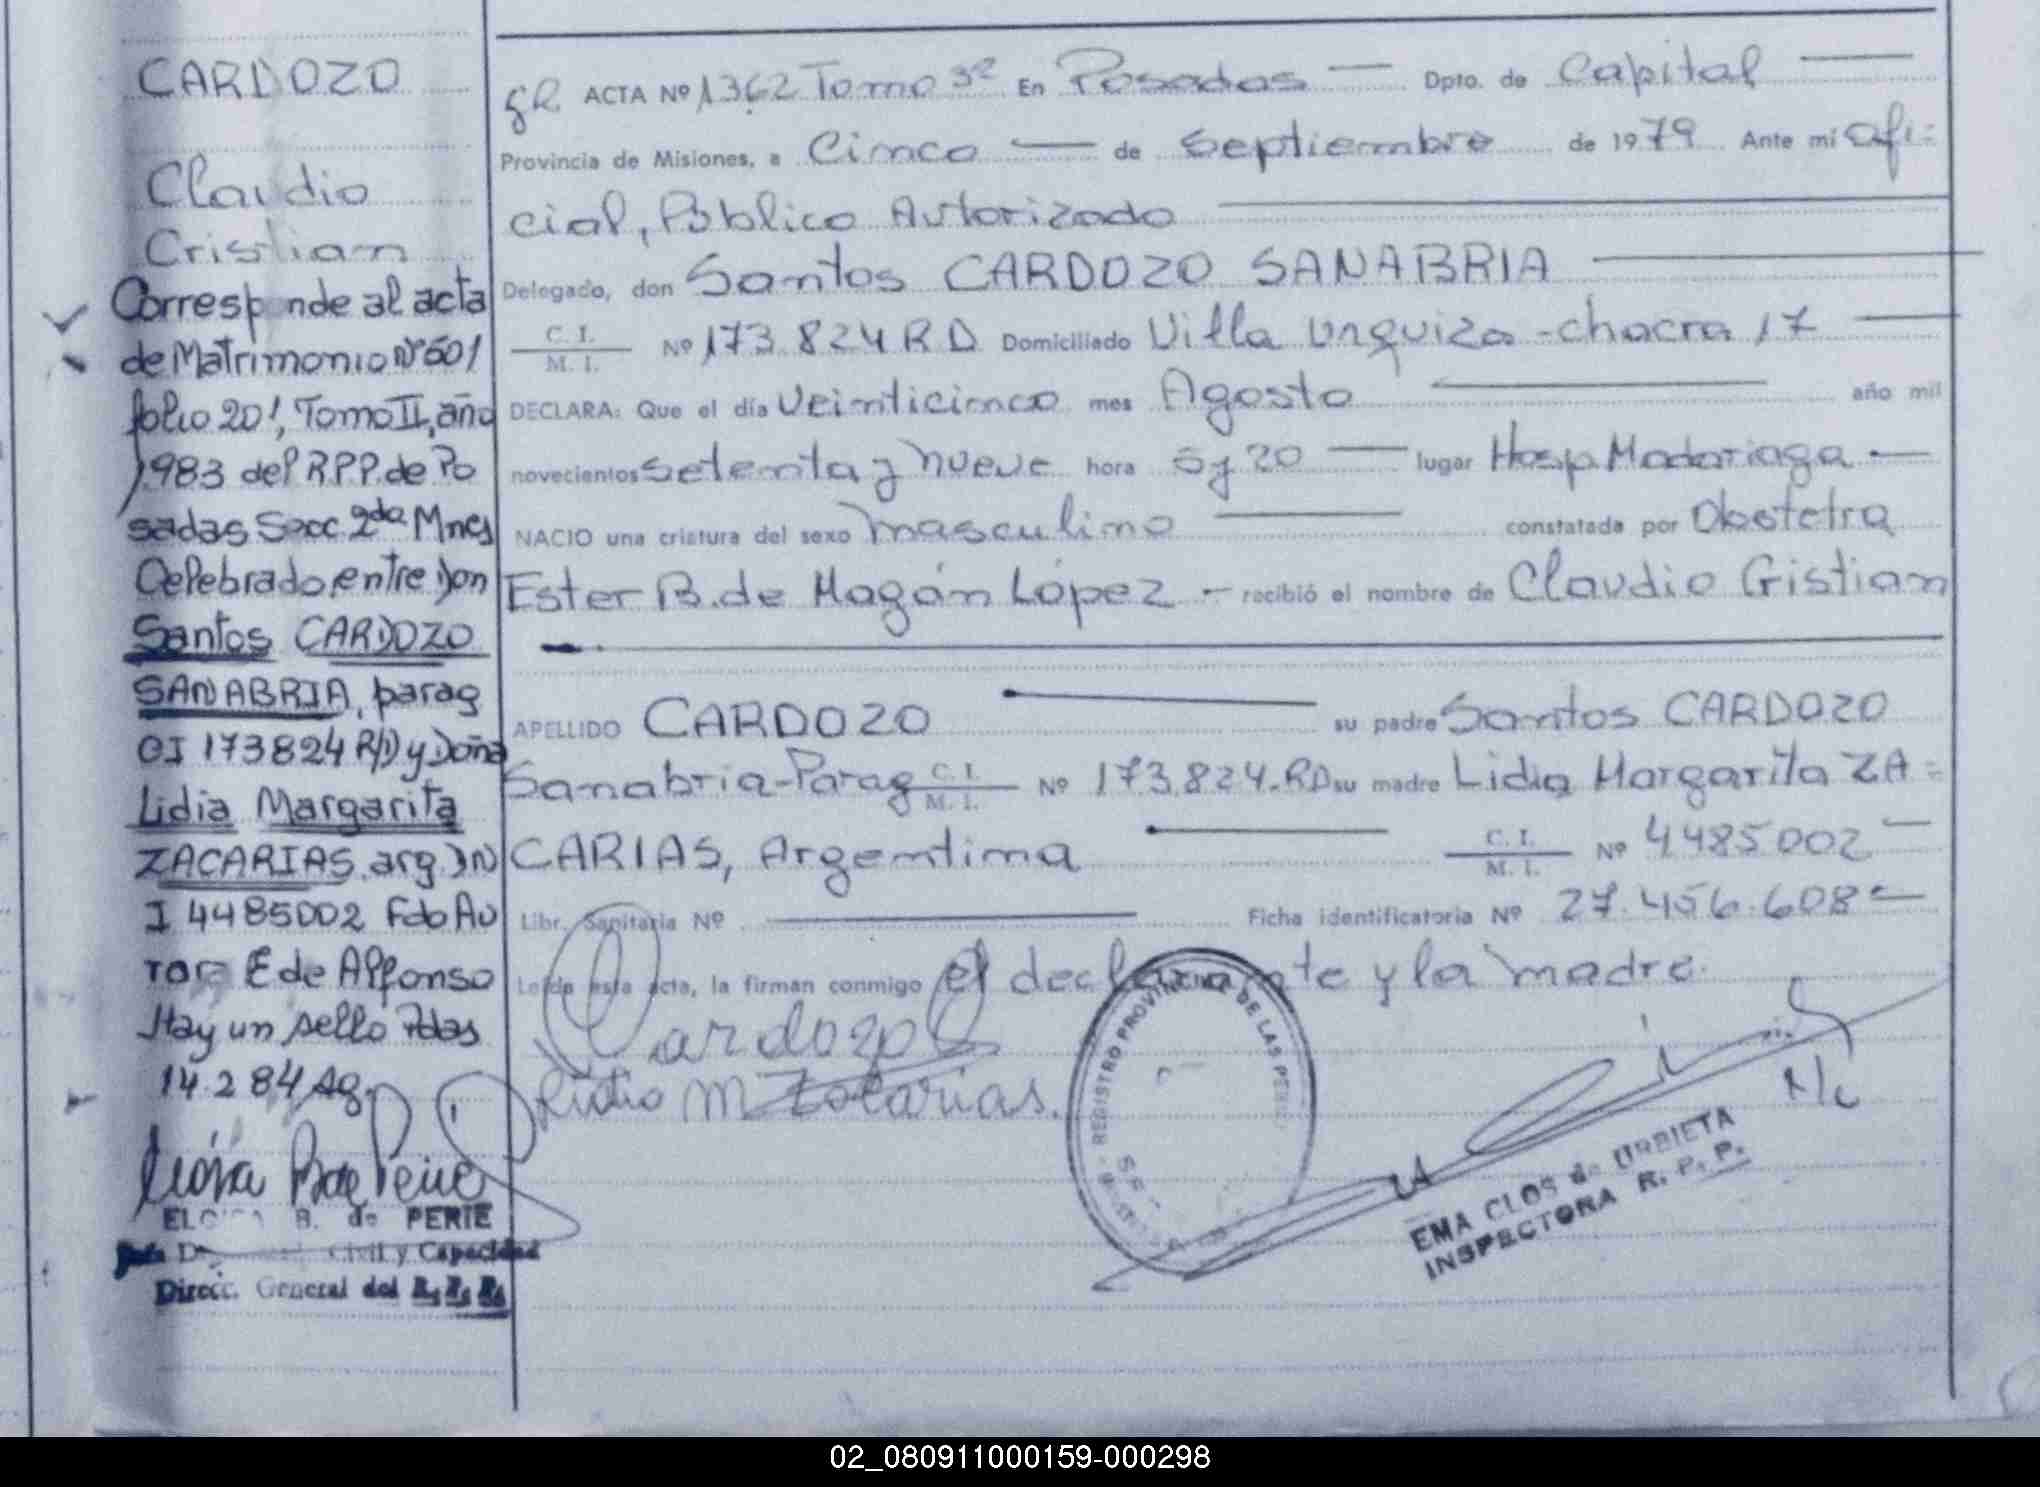 CARDOZO
Claudio
Cristian
Corresponde al acta
de Matrimonio Nº 601
folio 201, Tomo II, año
1983 del R.P.P. de Po
sadas Secc. 2da Mnes
Celebrado, entre Don
Santos CARDOZO
SANABRIA, parag
CI 173824 R/D y Doña
Lidia Margarita
ZACARIAS, arg. DN
I 4485002 Fdo Au
rora E de Alfonso
Hay un sello Pdas
14.2 84 Ag.
B. de PERIE
Civil y Capacidad
Direcc. General del R. P. P.
ACTA Nº 1362 Tomo 3º En Posadas Dpto. de Capital
Provincia de Misiones, a Cinco de Septiembre de 1979 Ante mí Ofi=
cial, Público Autorizado
Delegado, don Santos CARDOZO SANABRIA
C. I.
M. I. Nº 173.824 R D Domiciliado Villa Urquiza - chacra 17
DECLARA: Que el día Veinticinco mes Agosto año mil
novecientos setenta y nueve hora 5 y 20 lugar Hosp. Madariaga
NACIO una criatura del sexo masculino constatada por Obstetra
Ester B. de Magán López - recibió el nombre de Claudio Cristian
APELLIDO CARDOZO su padre Santos CARDOZO
Sanabria-Parag C. I.
M. I. Nº 173.824.RD su madre Lidia Margarita ZA=
CARIAS, Argentina C. I.
M. I. Nº 4485002
Libr. Sanitaria Nº Ficha identificatoria Nº 27.456.608
Leída esta acta, la firman conmigo el declarante y la madre.
Cardozo
Lidia M Zacarias.
REGISTRO PROVINCIAL DE LAS
EMA CLOS de URBIETA
INSPECTORA R. P. P.
02_080911000159-000298